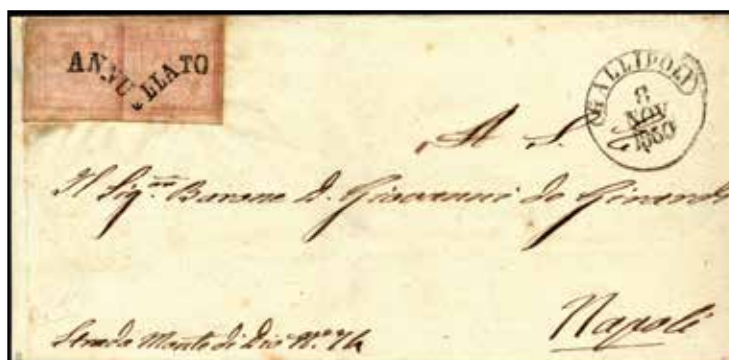 ANNULLATO
GALLIPOLI
8
NOV
1860
A S. S.
Il Sig.re Barone D. Giovanni de
Napoli
Strada Monte di Dio N.°